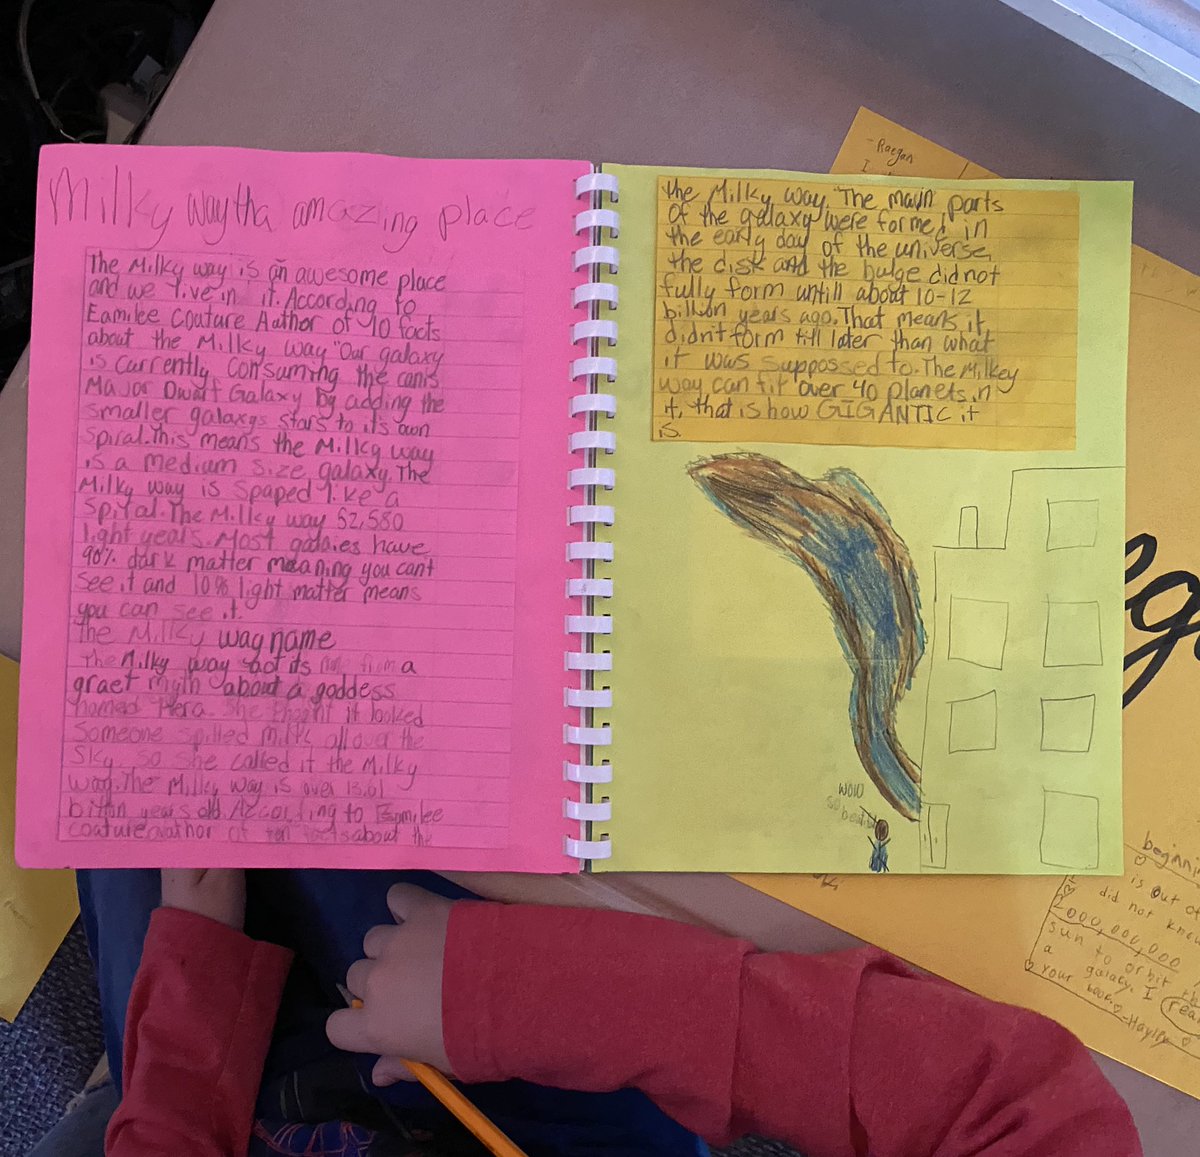 Milky way tha amazing place
The Milky way is an awesome place
and we live in it. According to
Eamilee Couture Author of 10 facts
about the Milky Way "Our galaxy
is currently consuming the canis
Major Dwarf Galaxy by adding the
smaller galaxys stars to its own
spiral. This means the Milky way
is a medium size galaxy. The
Milky way is spaped like a
spiral. The Milky way 52,580
light years. Most galaxies have
90% dark matter meaning you can't
see it and 10% light matter means
you can see it.
The Milky way name
The Milky way got its from a
graet myth about a goddess
named Hera. She it looked
Someone spilled milk all over the
sky. so she called it the Milky
way. The Milky way is over 13.61
years old. According to Eamilee
couture author of ten facts about the
the Milky Way. "The main parts
of the galaxy were formed in
the early day of the universe,
the disk and the bulge did not
fully form untill about 10-12
billion years ago. That means it
didn't form till later than what
it was supposed to. The Milkey
way can fit over 40 planets in
it, that is how GIGANTIC it
is.
WOW
so
-Raegan
I
beginni
is out of
did not know
2000,000,000
sun to orbit
a galaxy. I
your book. -Hayley